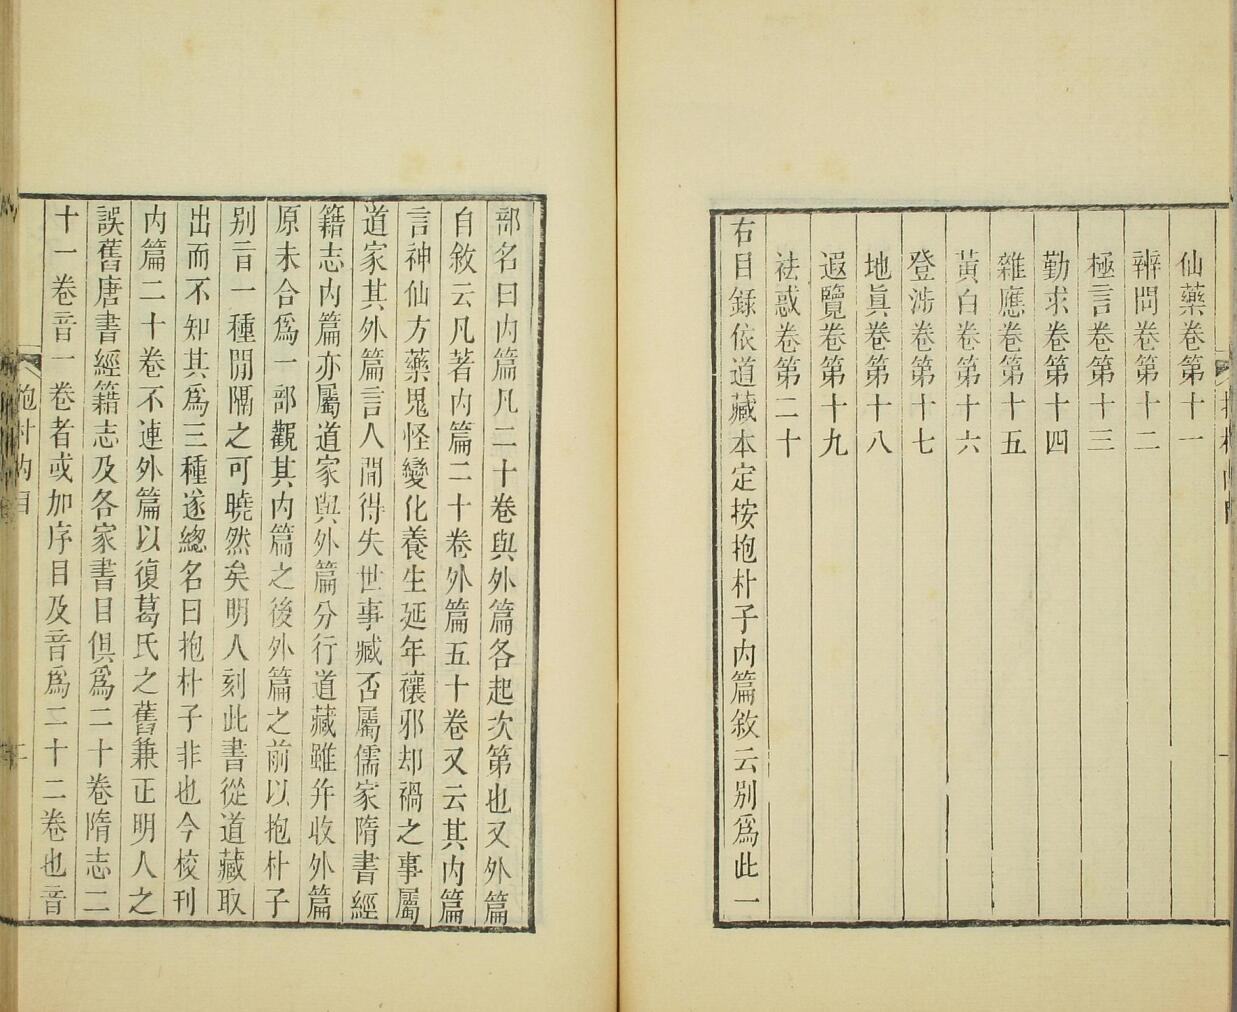 仙藥卷第十一
辨問卷第十二
極言卷第十三
勤求卷第十四
雜應卷第十五
黃白卷第十六
登涉卷第十七
地眞卷第十八
遐覽卷第十九
祛惑卷第二十
右目錄依道藏本定按抱朴子內篇敘云別爲此一
部名曰內篇凡二十卷與外篇各起次第也又外篇
自敘云凡著內篇二十卷外篇五十卷又云其內篇
言神仙方藥鬼怪變化養生延年禳邪却禍之事屬
道家其外篇言人閒得失世事臧否屬儒家隋書經
籍志內篇亦屬道家與外篇分行道藏雖并收外篇
原未合爲一部觀其內篇之後外篇之前以抱朴子
別音一種閒隔之可曉然矣明人刻此書從道藏取
出而不知其爲三種遂總名曰抱朴子非也今校刊
內篇二十卷不連外篇以復葛氏之舊兼正明人之
誤舊唐書經籍志及各家書目俱爲二十卷隋志二
十一卷音一卷者或加序目及音爲二十二卷也音
抱朴內目
二